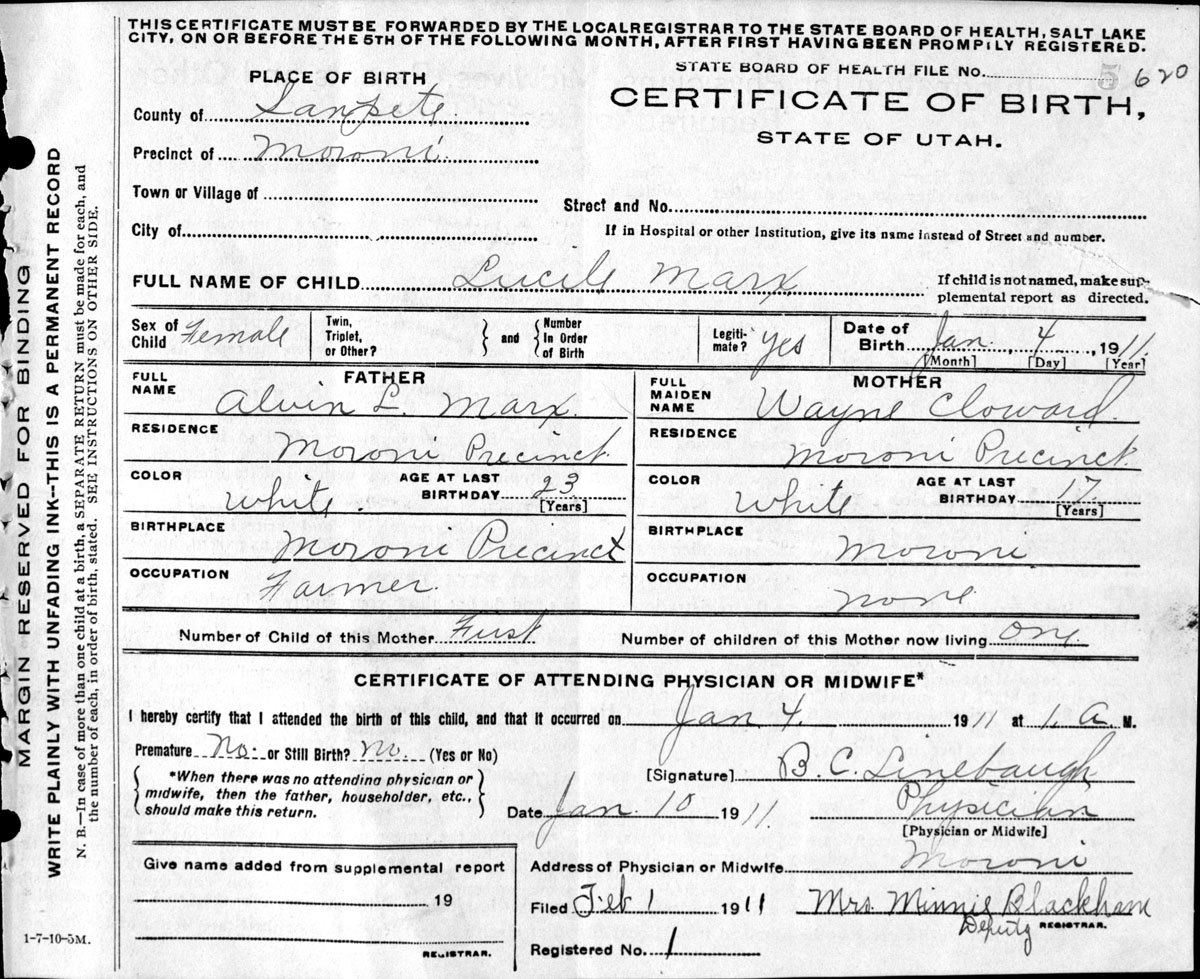 THIS CERTIFICATE MUST BE FORWARDED BY THE LOCALREGISTRAR TO THE STATE BOARD OF HEALTH, SALT LAKE
CITY, ON OR BEFORE THE 5TH OF THE FOLLOWING MONTH, AFTER FIRST HAVING BEEN PROMPILY REGISTERED.
PLACE OF BIRTH
STATE BOARD OF HEALTH FILE No. 5 620
CERTIFICATE OF BIRTH,
STATE OF UTAH.
County of Sanpete
Precinct of Moroni
Town or Village of
Street and No.
City of
If in Hospital or other Institution, give its name instead of Street and number.
FULL NAME OF CHILD Lucile Marx
If child is not named, make sup-
plemental report as directed.
Sex of Child Female
Twin, Triplet, or Other?
and
Number In Order of Birth
Legiti-mate? Yes
Date of Birth Jan. 4, 1911
[Month] [Day] [Year]
FATHER
FULL NAME Alvin L. Marx.
RESIDENCE Moroni Precinct.
COLOR White. AGE AT LAST BIRTHDAY 23 [Years]
BIRTHPLACE Moroni Precinct
OCCUPATION Farmer.
MOTHER
FULL MAIDEN NAME Wayne Cloward.
RESIDENCE Moroni Precinct.
COLOR White AGE AT LAST BIRTHDAY 17. [Years]
BIRTHPLACE Moroni
OCCUPATION none
Number of Child of this Mother First
Number of children of this Mother now living One
CERTIFICATE OF ATTENDING PHYSICIAN OR MIDWIFE*
I hereby certify that I attended the birth of this child, and that it occurred on Jan 4. 1911 at 1. a M.
Premature No. or Still Birth? no. (Yes or No)
*When there was no attending physician or
midwife, then the father, householder, etc.,
should make this return.
[Signature] B. C. Linebaugh
Date Jan. 10 1911.
Physician
[Physician or Midwife]
Give name added from supplemental report
19
REGISTRAR.
Address of Physician or Midwife Moroni
Filed Feb 1 1911
Mrs Minnie Blackham
Deputy REGISTRAR.
Registered No. 1
1-7-10-5M.
MARGIN RESERVED FOR BINDING
WRITE PLAINLY WITH UNFADING INK--THIS IS A PERMANENT RECORD
N. B.—In case of more than one child at a birth, a SEPARATE RETURN must be made for each, and
the number of each, in order of birth, stated. SEE INSTRUCTIONS ON OTHER SIDE.